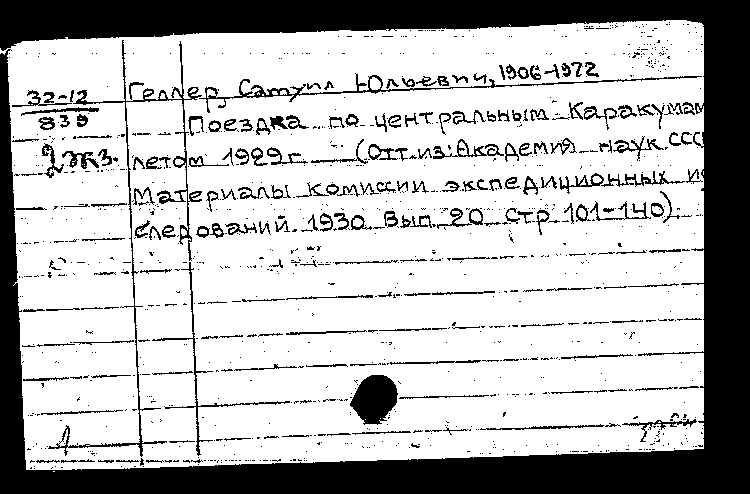 32-12
835
2 экз.
Геллер, Самуил Юльевич, 1906-1972
Поездка по центральным Каракумам
летом 1929 г. (Отт. из: Академия наук СССР
Материалы комиссии экспедиционных ис
следований. 1930. Вып. 20. Стр. 101-140).
1